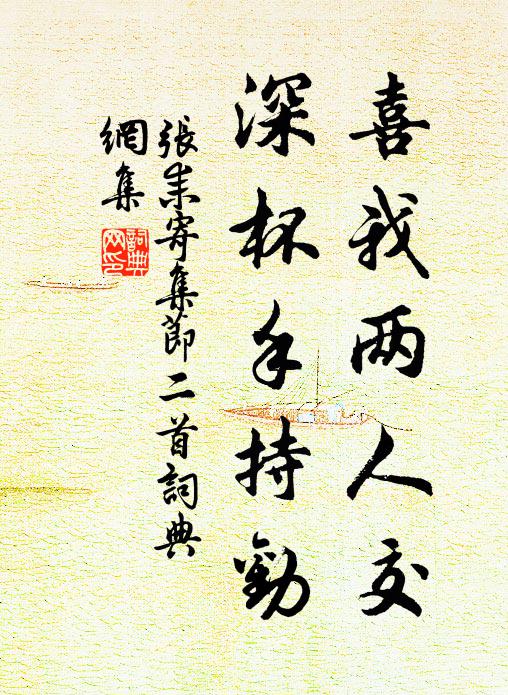 喜我两人交
深杯手持勸
張耒寄集節二首詞典
網集
詞典網印